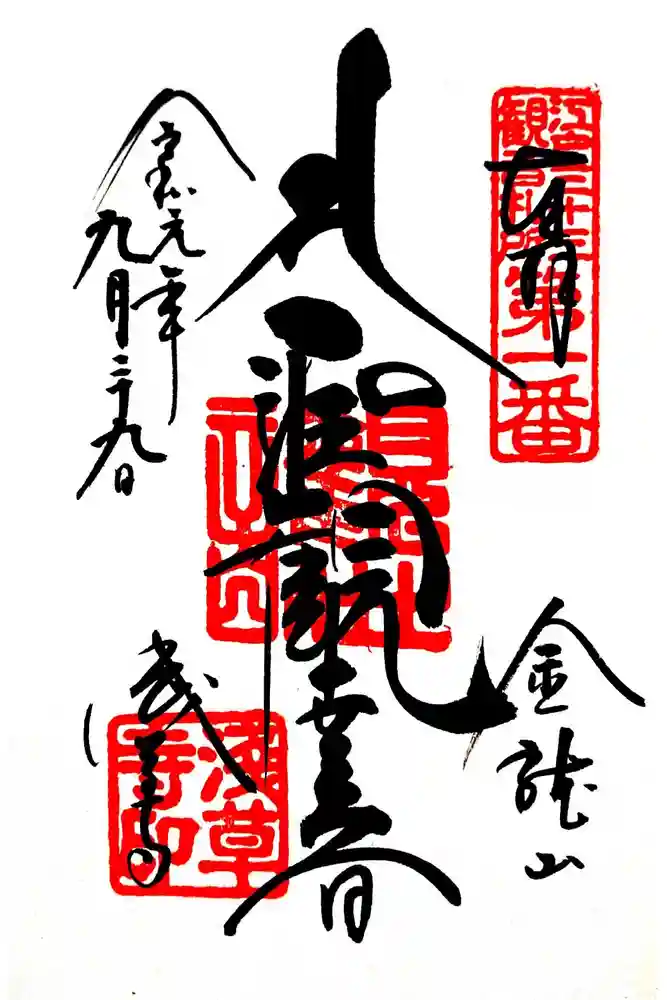 江戸三十三
観音札所第一番
奉拝
金龍山
聖観世音
浅草寺
浅草
寺印
令和元年
九月二十九日